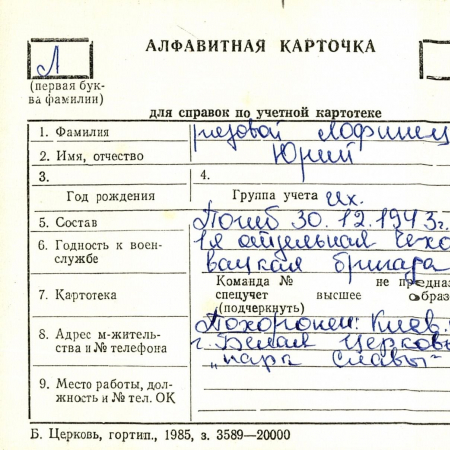 Л
АЛФАВИТНАЯ КАРТОЧКА
(первая бук-
ва фамилии)
для справок по учетной картотеке
1. Фамилия рядовой Лофинец
2. Имя, отчество Юрий
3.
4.
Год рождения
Группа учета
5. Состав Погиб 30.12.1943г.
6. Годность к воен- 1я отдельная чехо
службе вацкая бригада
7. Картотека
Команда № не предна
спецучет высшее образ
(подчеркнуть)
8. Адрес м-житель- Похоронен: Киев.
ства и № телефона г. Белая Церковь
„парк Славы"
9. Место работы, дол-
жность и № тел. ОК
Б. Церковь, гортип., 1985, з. 3589—20000